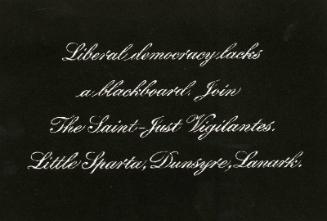 Liberal democracy lacks
a blackboard. Join
The Saint-Just Vigilantes.
Little Sparta, Dunsyre, Lanark.